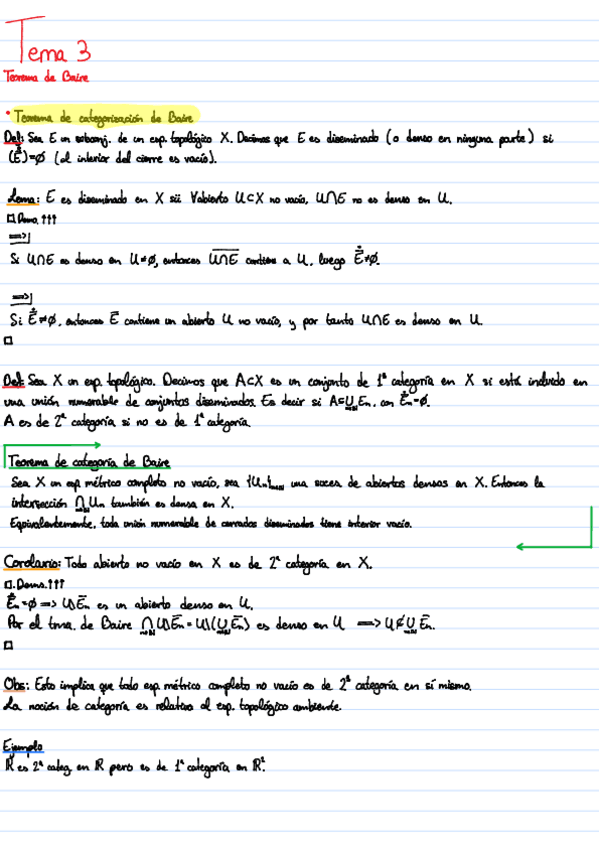 Tema 3
Teorema de Baire
• Teorema de categorización de Baire
Def: Sea E un subconj. de un esp. topológico X. Decimos que E es diseminado (o denso en ninguna parte) si
(E̅)°=∅ (el interior del cierre es vacío).
Lema: E es diseminado en X sii ∀abierto U⊂X no vacío, U∩E no es denso en U.
□ Demo. ↑↑↑
=>|
Si U∩E es denso en U≠∅, entonces \overline{U∩E} contiene a U, luego E̅°≠∅.
=>|
Si E̅°≠∅, entonces E̅ contiene un abierto U no vacío, y por tanto U∩E es denso en U.
□
Def: Sea X un esp. topológico. Decimos que A⊂X es un conjunto de 1ª categoría en X si está incluido en
una unión numerable de conjuntos diseminados. Es decir si A⊆∪Eₙ, con E̅ₙ°=∅.
A es de 2ª categoría si no es de 1ª categoría.
Teorema de categoría de Baire
Sea X un esp métrico completo no vacío, sea {Uₙ}ₙ∈ℕ una suces. de abiertos densos en X. Entonces la
intersección ∩Uₙ también es densa en X.
Equivalentemente, toda unión numerable de cerrados diseminados tiene interior vacío.
Corolario: Todo abierto no vacío en X es de 2ª categoría en X.
□. Demo. ↑↑↑
E̅ₙ°=∅ => U\E̅ₙ es un abierto denso en U.
Por el tma. de Baire ∩ₙ∈ℕ U\E̅ₙ = U\(∪ₙ∈ℕ E̅ₙ) es denso en U => U⊄∪ₙ∈ℕ E̅ₙ.
□
Obs: Esto implica que todo esp. métrico completo no vacío es de 2ª categoría en sí mismo.
La noción de categoría es relativa al esp. topológico ambiente.
Ejemplo
ℝ es 2ª categ. en ℝ pero es de 1ª categoría en ℝ².